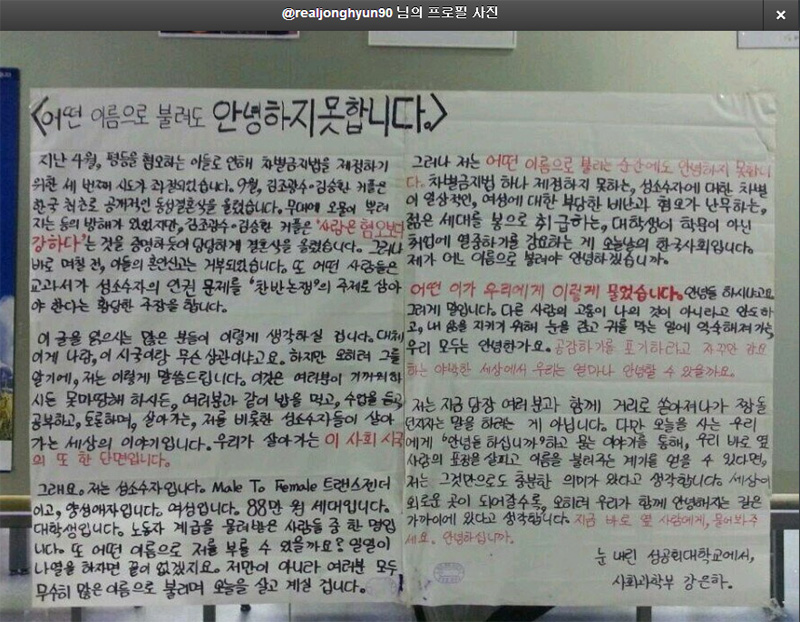 @realjonghyun90 님의 프로필 사진
×
<어떤 이름으로 불려도 안녕하지못합니다.>
지난 4월, 평등을 혐오하는 이들로 인해 차별금지법을 제정하기
위한 세 번째 시도가 좌절되었습니다. 9월, 김조광수·김승환 커플은
한국 최초로 공개적인 동성결혼식을 올렸습니다. 무대에 오물이 뿌려
지는 등의 방해가 있었지만, 김조광수·김승환 커플은 "사랑은 혐오보다
강하다"는 것을 증명하듯이 담담하게 결혼식을 올렸습니다. 그러나
바로 며칠 전, 이들의 혼인신고는 거부되었습니다. 또 어떤 사람들은
교과서가 성소수자의 인권 문제를 '찬반논쟁'의 주제로 삼아
야 한다는 황당한 주장을 합니다.
이 글을 읽으시는 많은 분들이 이렇게 생각하실 겁니다. 대체
이게 나랑, 이 시국이랑 무슨 상관이냐고요. 하지만 오히려 그를
알기에, 저는 이렇게 말씀드립니다. 이것은 여러분이 기꺼워하
시든 못마땅해 하시든, 여러분과 같이 밥을 먹고, 수업을 듣고,
공부하고, 토론하며, 살아가는, 저를 비롯한 성소수자들이 살아
가는 세상의 이야기입니다. 우리가 살아가는 이 사회 시국
의 또 한 단면입니다.
그래요. 저는 성소수자입니다. Male To Female 트랜스젠더
이고, 양성애자입니다. 여성입니다. 88만 원 세대입니다.
대학생입니다. 노동자 계급을 물려받은 사람들 중 한 명입
니다. 또 어떤 이름으로 저를 부를 수 있을까요? 일일이
나열을 하자면 끝이 없겠지요. 저만이 아니라 여러분 모두
무수히 많은 이름으로 불리며 오늘을 살고 계실 겁니다.
그러나 저는 어떤 이름으로 불리는 순간에도 안녕하지 못합니
다. 차별금지법 하나 제정하지 못하는, 성소수자에 대한 차별
이 일상적인, 여성에 대한 부당한 비난과 혐오가 난무하는,
젊은 세대를 봉으로 취급하는, 대학생이 학문이 아닌
취업에 열중하기를 강요하는 게 오늘날의 한국사회입니다.
제가 어느 이름으로 불려야 안녕하겠습니까.
어떤 이가 우리에게 이렇게 물었습니다. 안녕들 하시냐고요.
그러게 말입니다. 다른 사람의 고통이 나의 것이 아니라고 안도하
고, 내 삶을 지키기 위해 눈을 감고 귀를 막는 일에 익숙해져가는,
우리 모두는 안녕한가요. 공감하기를 포기하라고 자꾸만 강요
하는 야박한 세상에서 우리는 얼마나 안녕할 수 있을까요.
저는 지금 당장 여러분과 함께 거리로 쏟아져나가 짱돌
던지자는 말을 하려는 게 아닙니다. 다만 오늘을 사는 우리
에게 "안녕들 하십니까"하고 묻는 이야기를 통해, 우리 바로 옆
사람의 표정을 살피고 이름을 불러주는 계기를 얻을 수 있다면,
저는 그것만으로도 충분한 의미가 있다고 생각합니다. 세상이
외로운 곳이 되어갈수록, 오히려 우리가 함께 안녕해지는 길은
가까이에 있다고 생각합니다. 지금 바로 옆 사람에게, 물어봐주
세요. 안녕하십니까.
눈 내린 성공회대학교에서,
사회과학부 강은하.